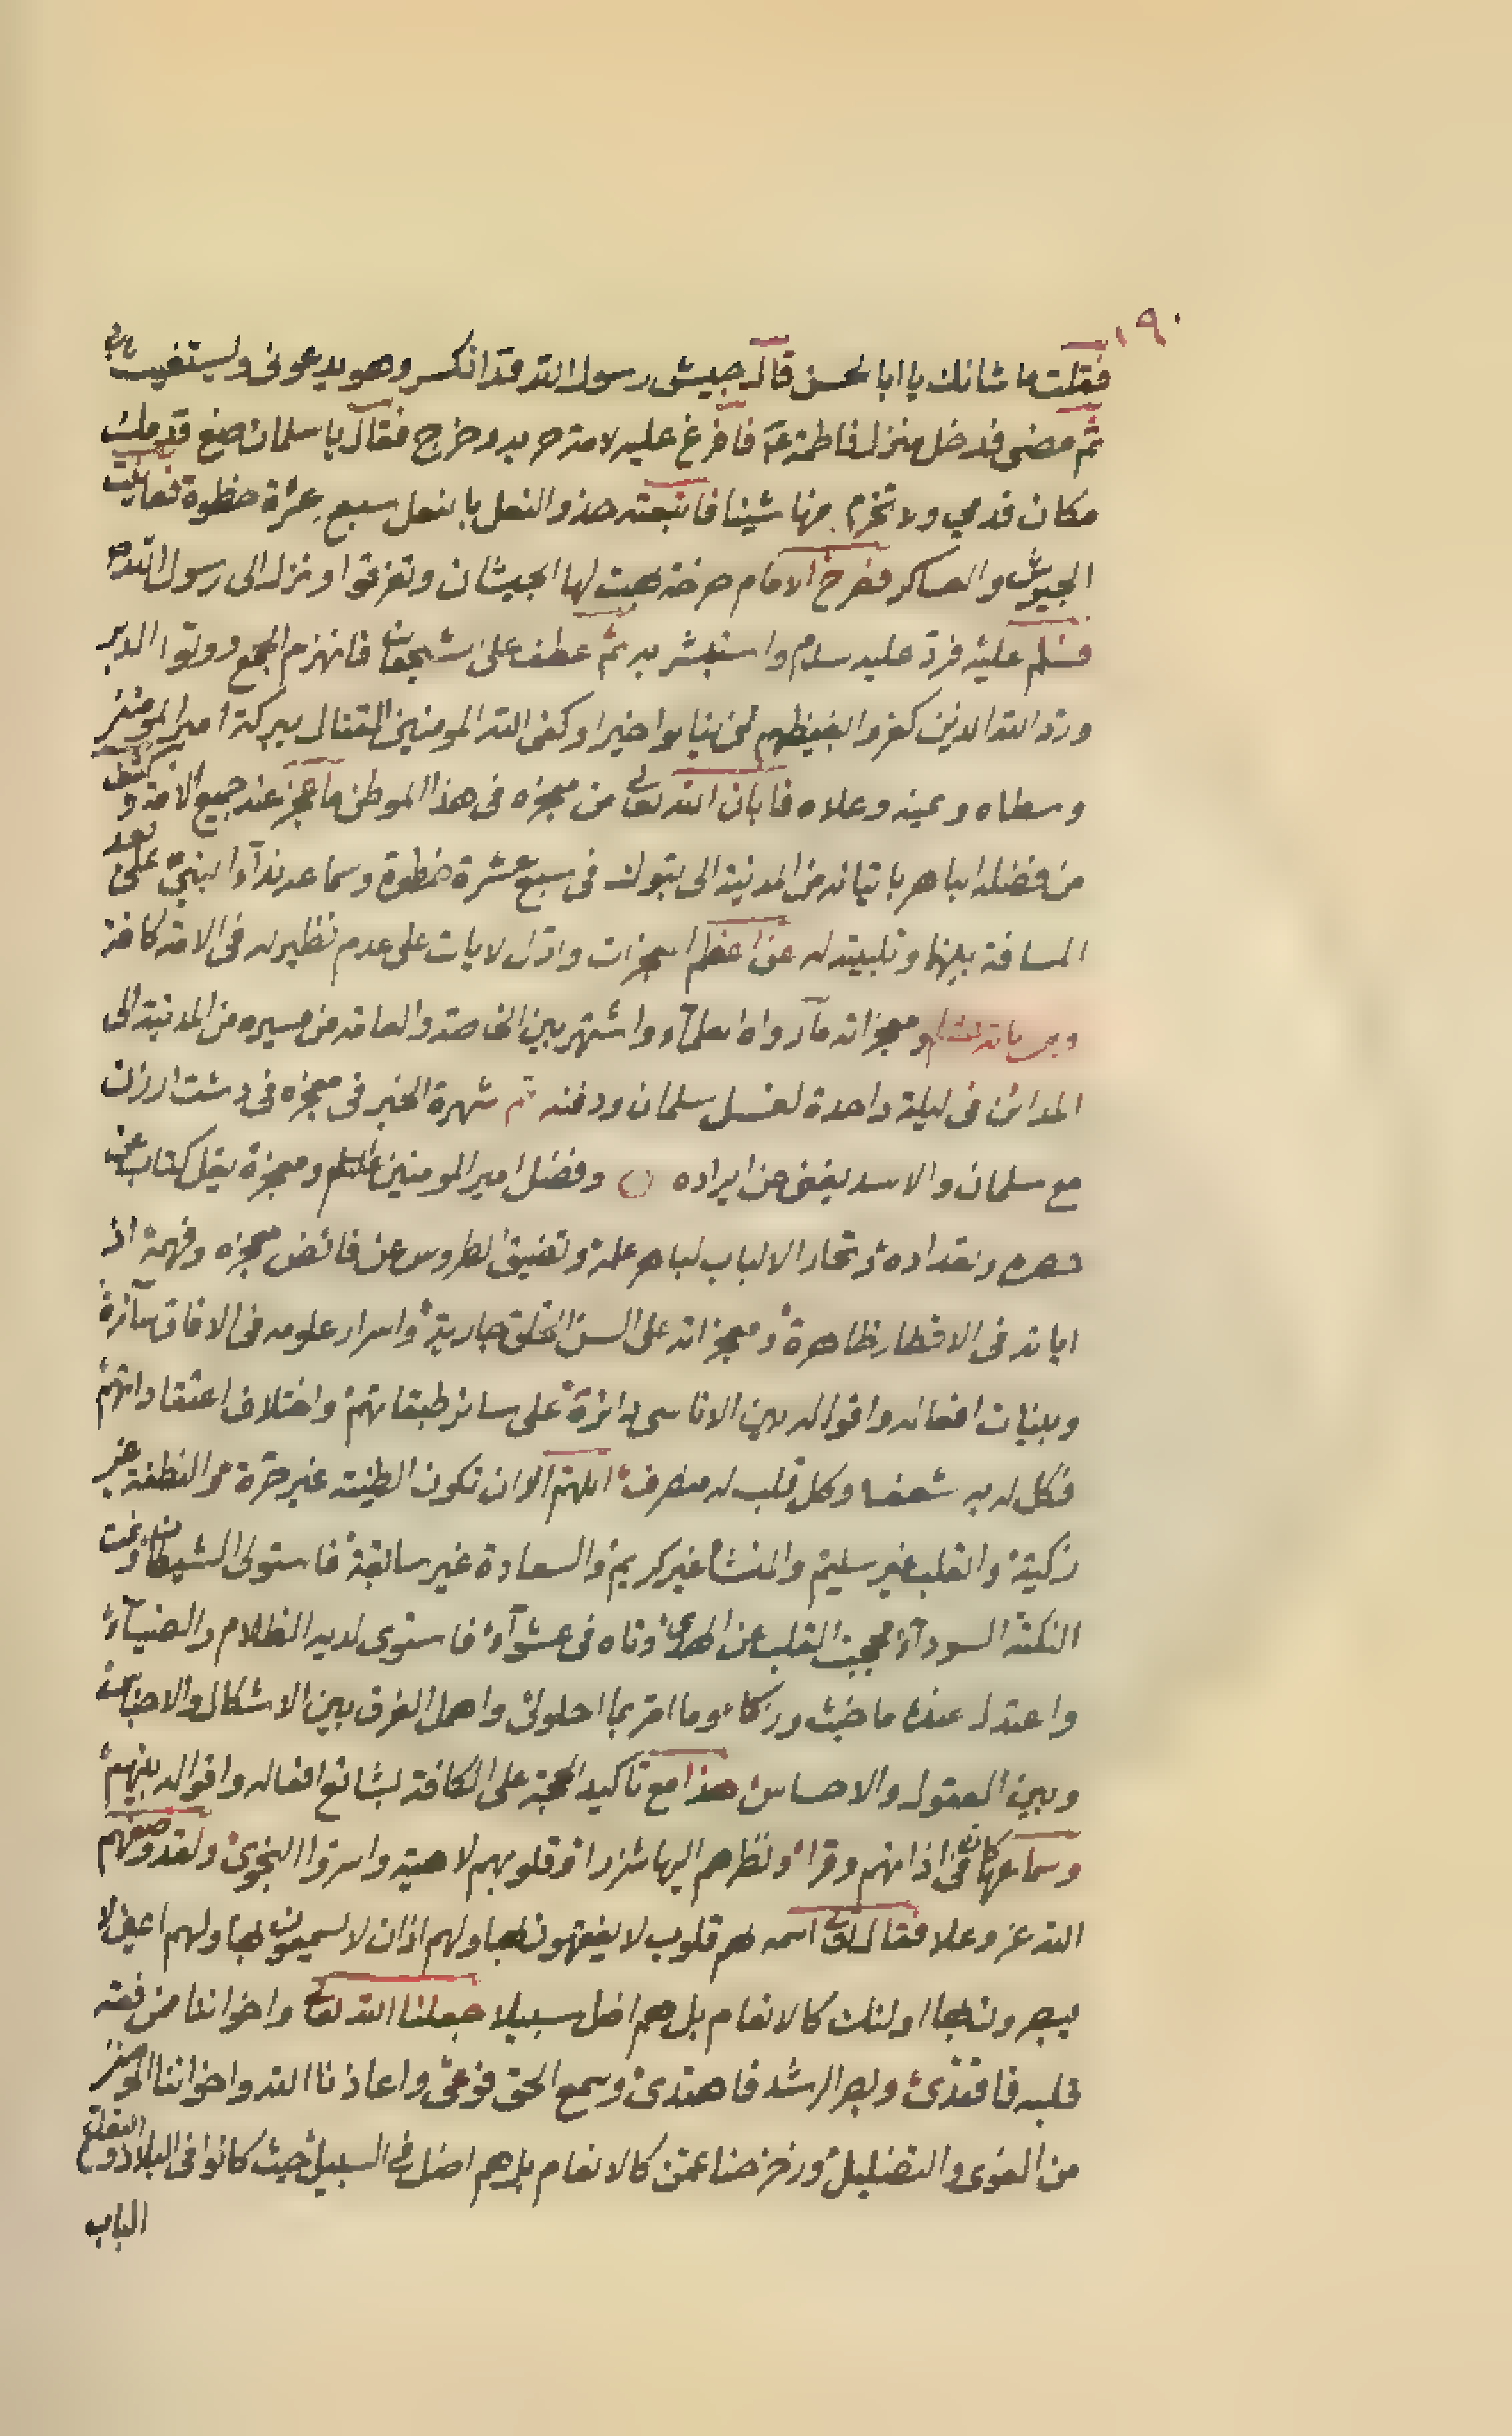 ١٩٠
فقلت ما شانك يا ابا الحسن قال جيش رسول الله قد انكسر وهو يدعونى ويستغيث بى
ثم مضى فدخل منزل فاطمة ع فافرغ عليه لامة حربه وخرج فقال يا سلمان ضع قدمك
مكان قدمي ولا تخرم منها شيئا فاتبعته حذو النعل بالنعل سبع عشرة خطوة فعاينت
الجيوش والعساكر فصرخ الامام صرخة لها الجيشان وتفرقوا ونزل الى رسول الله ص
فسلم عليه فرد عليه سلام واستبشر به ثم عطف على شجعان فانهزم الجمع وولوا الدبر
ورد الله الذين كفروا بغيظهم لن ينالوا خيرا وكفى الله المومنين القتال ببركة امير المومنين
وسطاه وعلاه فابان الله تعالى من معجزه فى هذا الموطن ما عجز عنه جميع الامة وكشف
من فضله الباهر باتيانه من المدينة الى تبوك فى سبع عشرة خطوة وسماعه نداء النبي على بعد
المسافة بينهما وتلبيته له من اعظم المعجزات وادل الايات على عدم نظير له فى الامة كافة
ومعجزاته ما رواه العلماء واشتهر بين الخاصة والعامة من مسيره من المدينة الى
المدائن فى ليلة واحدة لغسل سلمان ودفنه ثم شهرة الخبر فى معجزه فى دشت ارزن
مع سلمان والاسد يغنى عن ايراده وفضل امير المومنين عليه السلم ومعجزه يقل كتاب عن
حصره وتعداده وتحار الالباب لباهر علمه وتضيق الطروس عن فائض معجزه وفهمه اذ
اياته فى الاقطار ظاهرة ومعجزاته على السن الخلق جارية واسرار علومه فى الافاق سآئرة
وبينات افعاله واقواله بين الاناسى دائرة على سائر طبقاتهم واختلاف اعتقاداتهم
فكل لديه شغف وكل قلب له منصرف اللهم الا ان تكون الطينة غير حرة والنطفة غير
زكية والقلب غير سليم والمنشأ غير كريم والسعادة غير سابقة فاستولى الشيطان ونمت
النكتة السودآء فحجبت القلب عن الهدى وتاه فى عشوآء فاستوى لديه الظلام والضيآء
واعتدل عنده ما خبث وزكا وما امر بما احلولى واهمل الفرق بين الاشكال والاجناس
وبين العقول والاحساس هذا مع تاكيد الحجة على الكافة بشائع افعاله واقواله بينهم
وسماعها كان فى اذانهم وقرا ونظرهم اليها شزرا وقلوبهم لاهية واسروا النجوى ولقد وصفهم
الله عز وعلا فقال تعالى اسمه لهم قلوب لا يفقهون بها ولهم اذان لا يسمعون بها ولهم اعين لا
يبصرون بها اولئك كالانعام بل هم اضل سبيلا جعلنا الله تعالى واخواننا من فقه
قلبه فاقتدى وبصر الرشد فاهتدى وسمع الحق فوعى واعاذنا الله واخواننا المومنين
من الغوى والتضليل وزحزحنا عمن كالانعام بل هم اضل فى السبيل حيث كانوا فى البلاد و
الباب